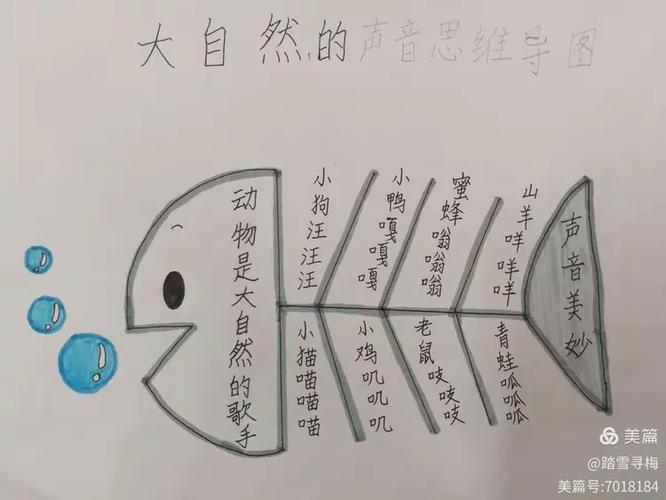 大自然的声音思维导图
动物是大自然的歌手
小狗汪汪汪
小鸭嘎嘎嘎
蜜蜂嗡嗡嗡
山羊咩咩咩
小猫喵喵喵
小鸡叽叽叽
老鼠吱吱吱
青蛙呱呱呱
声音美妙
美篇
@踏雪寻梅
美篇号:7018184